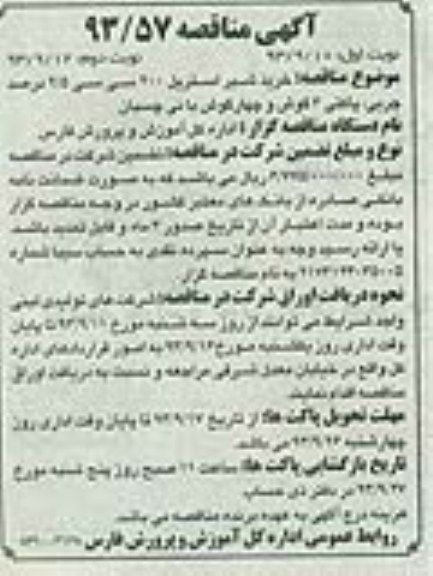 آگهی مناقصه ۹۳/۵۷
نوبت اول: ۹۳/۹/۱۰ نوبت دوم: ۹۳/۹/۱۲
موضوع مناقصه: خرید شیر استریل ۲۰۰ سی سی ۲/۵ درصد
چربی، پاکتی ۳ گوش و چهارگوش با نی چسبان
نام دستگاه مناقصه گزار: اداره کل آموزش و پرورش فارس
نوع و مبلغ تضمین شرکت در مناقصه: تضمین شرکت در مناقصه
مبلغ ریال می باشد که به صورت ضمانت نامه
بانکی صادره از بانک های معتبر کشور در وجه مناقصه گزار
بوده و مدت اعتبار آن از تاریخ صدور ۳ ماه و قابل تمدید باشد
یا ارائه رسید وجه به عنوان سپرده نقدی به حساب سیبا شماره
به نام مناقصه گزار
نحوه دریافت اوراق شرکت در مناقصه: شرکت های تولیدی لبنی
واجد شرایط می توانند از روز سه شنبه مورخ ۹۳/۹/۱۱ تا پایان
وقت اداری روز یکشنبه مورخ ۹۳/۹/۱۶ به امور قراردادهای اداره
کل واقع در خیابان معدل شرقی مراجعه و نسبت به دریافت اوراق
مناقصه اقدام نمایند.
مهلت تحویل پاکت ها: از تاریخ ۹۳/۹/۱۷ تا پایان وقت اداری روز
چهارشنبه ۹۳/۹/۲۶ می باشد.
تاریخ بازگشایی پاکت ها: ساعت ۱۱ صبح روز پنج شنبه مورخ
۹۳/۹/۲۷ در دفتر ذی حساب
هزینه درج آگهی به عهده برنده مناقصه می باشد.
روابط عمومی اداره کل آموزش و پرورش فارس